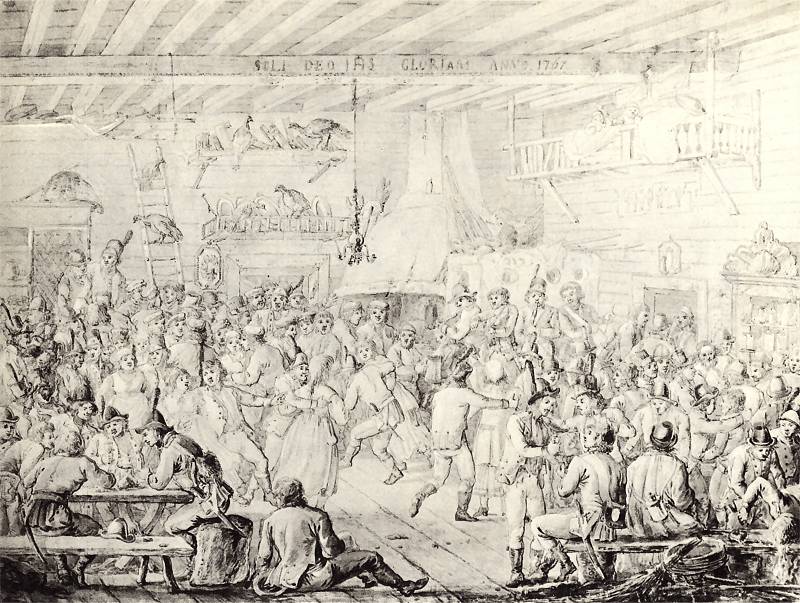 SOLI DEO IHS GLORIAM ANNO 1767